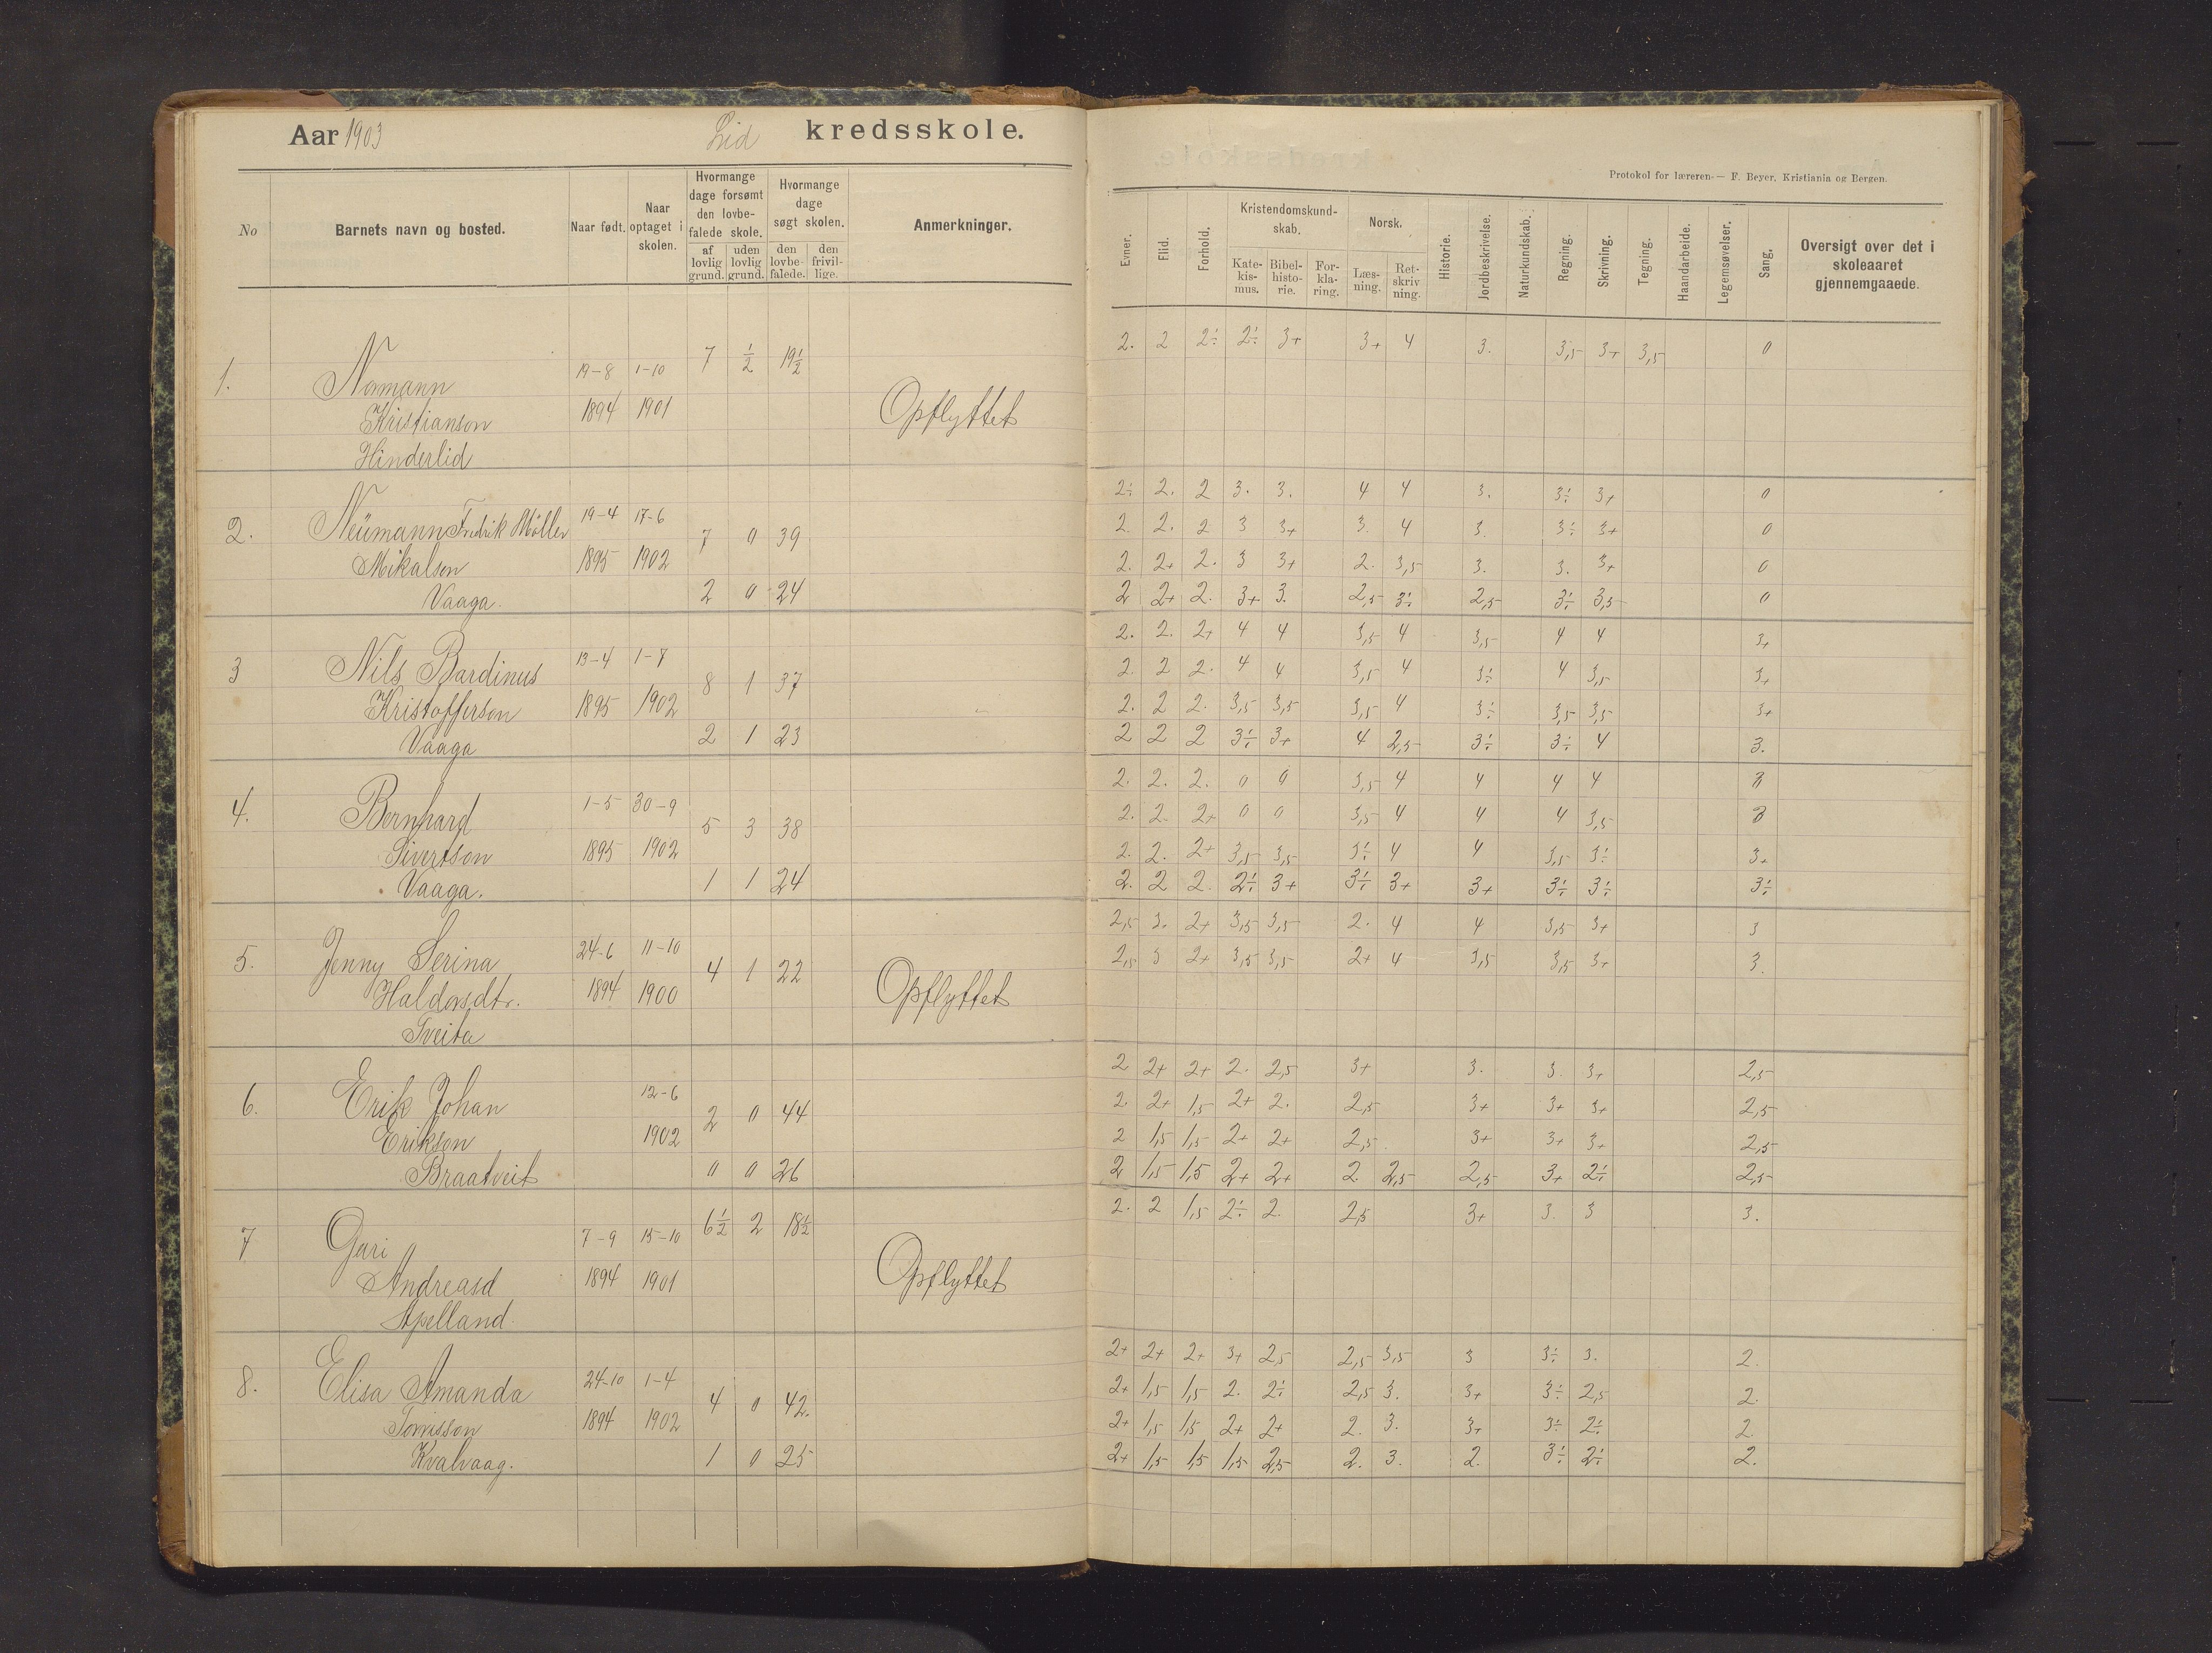 Aar 1903 Lid kredsskole.
No
Barnets navn og bosted.
Naar født.
Naar optaget i skolen.
Hvormange dage forsømt den lovbefalede skole.
af lovlig grund.
uden lovlig grund.
Hvormange dage søgt skolen.
den lovbefalede.
den frivillige.
Anmerkninger.
1. Normann 19-8 1-10 7 ½ 19½
Kristianson 1894 1901 Opflyttet
Hinderlid
2. Neümann Fredrik Møller 19-4 17-6 7 0 39
Mikalson 1895 1902
Vaaga. 2 0 24
3 Nils Bardinus 13-4 1-7 8 1 37
Kristofferson 1895 1902
Vaaga 2 1 23
4. Bernhard 1-5 30-9 5 3 38
Sivertson 1895 1902
Vaaga. 1 1 24
5. Jenny Serina 24-6 11-10 4 1 22
Haldorsdtr. 1894 1900 Opflyttet
Tveita
6. Erik Johan 12-6 2 0 44
Erikson 1902
Braatveit 0 0 26
7 Guri 7-9 15-10 6½ 2 18½
Andreasd 1894 1901 Opflyttet
Apelland.
8. Elisa Amanda 24-10 1-4 4 0 42.
Tonnsson 1894 1902
Kvalvaag. 1 0 25
Protokol for læreren. — F. Beyer, Kristiania og Bergen.
Evner.
Flid.
Forhold.
Kristendomskundskab.
Katekismus.
Bibelhistorie.
Forklaring.
Norsk.
Læsning.
Retskrivning.
Historie.
Jordbeskrivelse.
Naturkundskab.
Regning.
Skrivning.
Tegning.
Haandarbeide.
Legemsøvelser.
Sang.
Oversigt over det i skoleaaret gjennemgaaede.
2. 2 2÷ 2÷ 3+ 3+ 4 3. 3,5 3+ 3,5 0
2÷ 2. 2 3. 3. 4 4 3. 3÷ 3+ 0
2. 2. 2 3 3+ 3. 4 3. 3÷ 3+ 0
2. 2+ 2. 3 3+ 2. 3,5 3. 3. 3+ 0
2 2+ 2. 3+ 3. 2,5 3÷ 2,5 3÷ 3,5 0
2. 2. 2+ 4 4 3,5 4 3,5 4 4 3+
2. 2 2. 4 4 3,5 4 3÷ 4 3,5 3+
2. 2 2. 3,5 3,5 3,5 4 3÷ 3,5 3,5 3+
2 2 2 3÷ 3+ 4 2,5 3÷ 3÷ 4 3.
2. 2. 2. 0 0 3,5 4 4 4 4 3
2. 2 2+ 0 0 3,5 4 4 4 3,5 3
2. 2. 2+ 3,5 3,5 3÷ 4 4 3,5 3÷ 3+
2. 2 2. 2÷ 3+ 3÷ 3+ 3+ 3÷ 3÷ 3÷
2,5 3. 2+ 3,5 3,5 2. 4 4 3,5 3+ 3
2,5 3 2+ 3,5 3,5 2+ 4 3,5 3,5 3+ 3.
2 2+ 2+ 2. 2,5 3+ 3. 3. 3+ 2,5
2. 2+ 1,5 2+ 2. 2,5 3+ 3+ 3+ 2,5
2 1,5 1,5 2+ 2+ 2,5 3+ 3+ 3+ 2,5
2 1,5 1,5 2+ 2+ 2. 2,5 2,5 3+ 2÷ 2,5
2. 2 1,5 2÷ 2. 2,5 3+ 3. 3 3.
2+ 2+ 2+ 3+ 2,5 2,5 3,5 3 3÷ 3. 2.
2+ 1,5 1,5 2. 2÷ 2,5 3. 3+ 3÷ 2,5 2.
2+ 1,5 1,5 2+ 2+ 2. 3. 3+ 3÷ 2÷ 2.
2+ 1,5 1,5 1,5 2,5 2. 3. 2. 3÷ 2÷ 2.